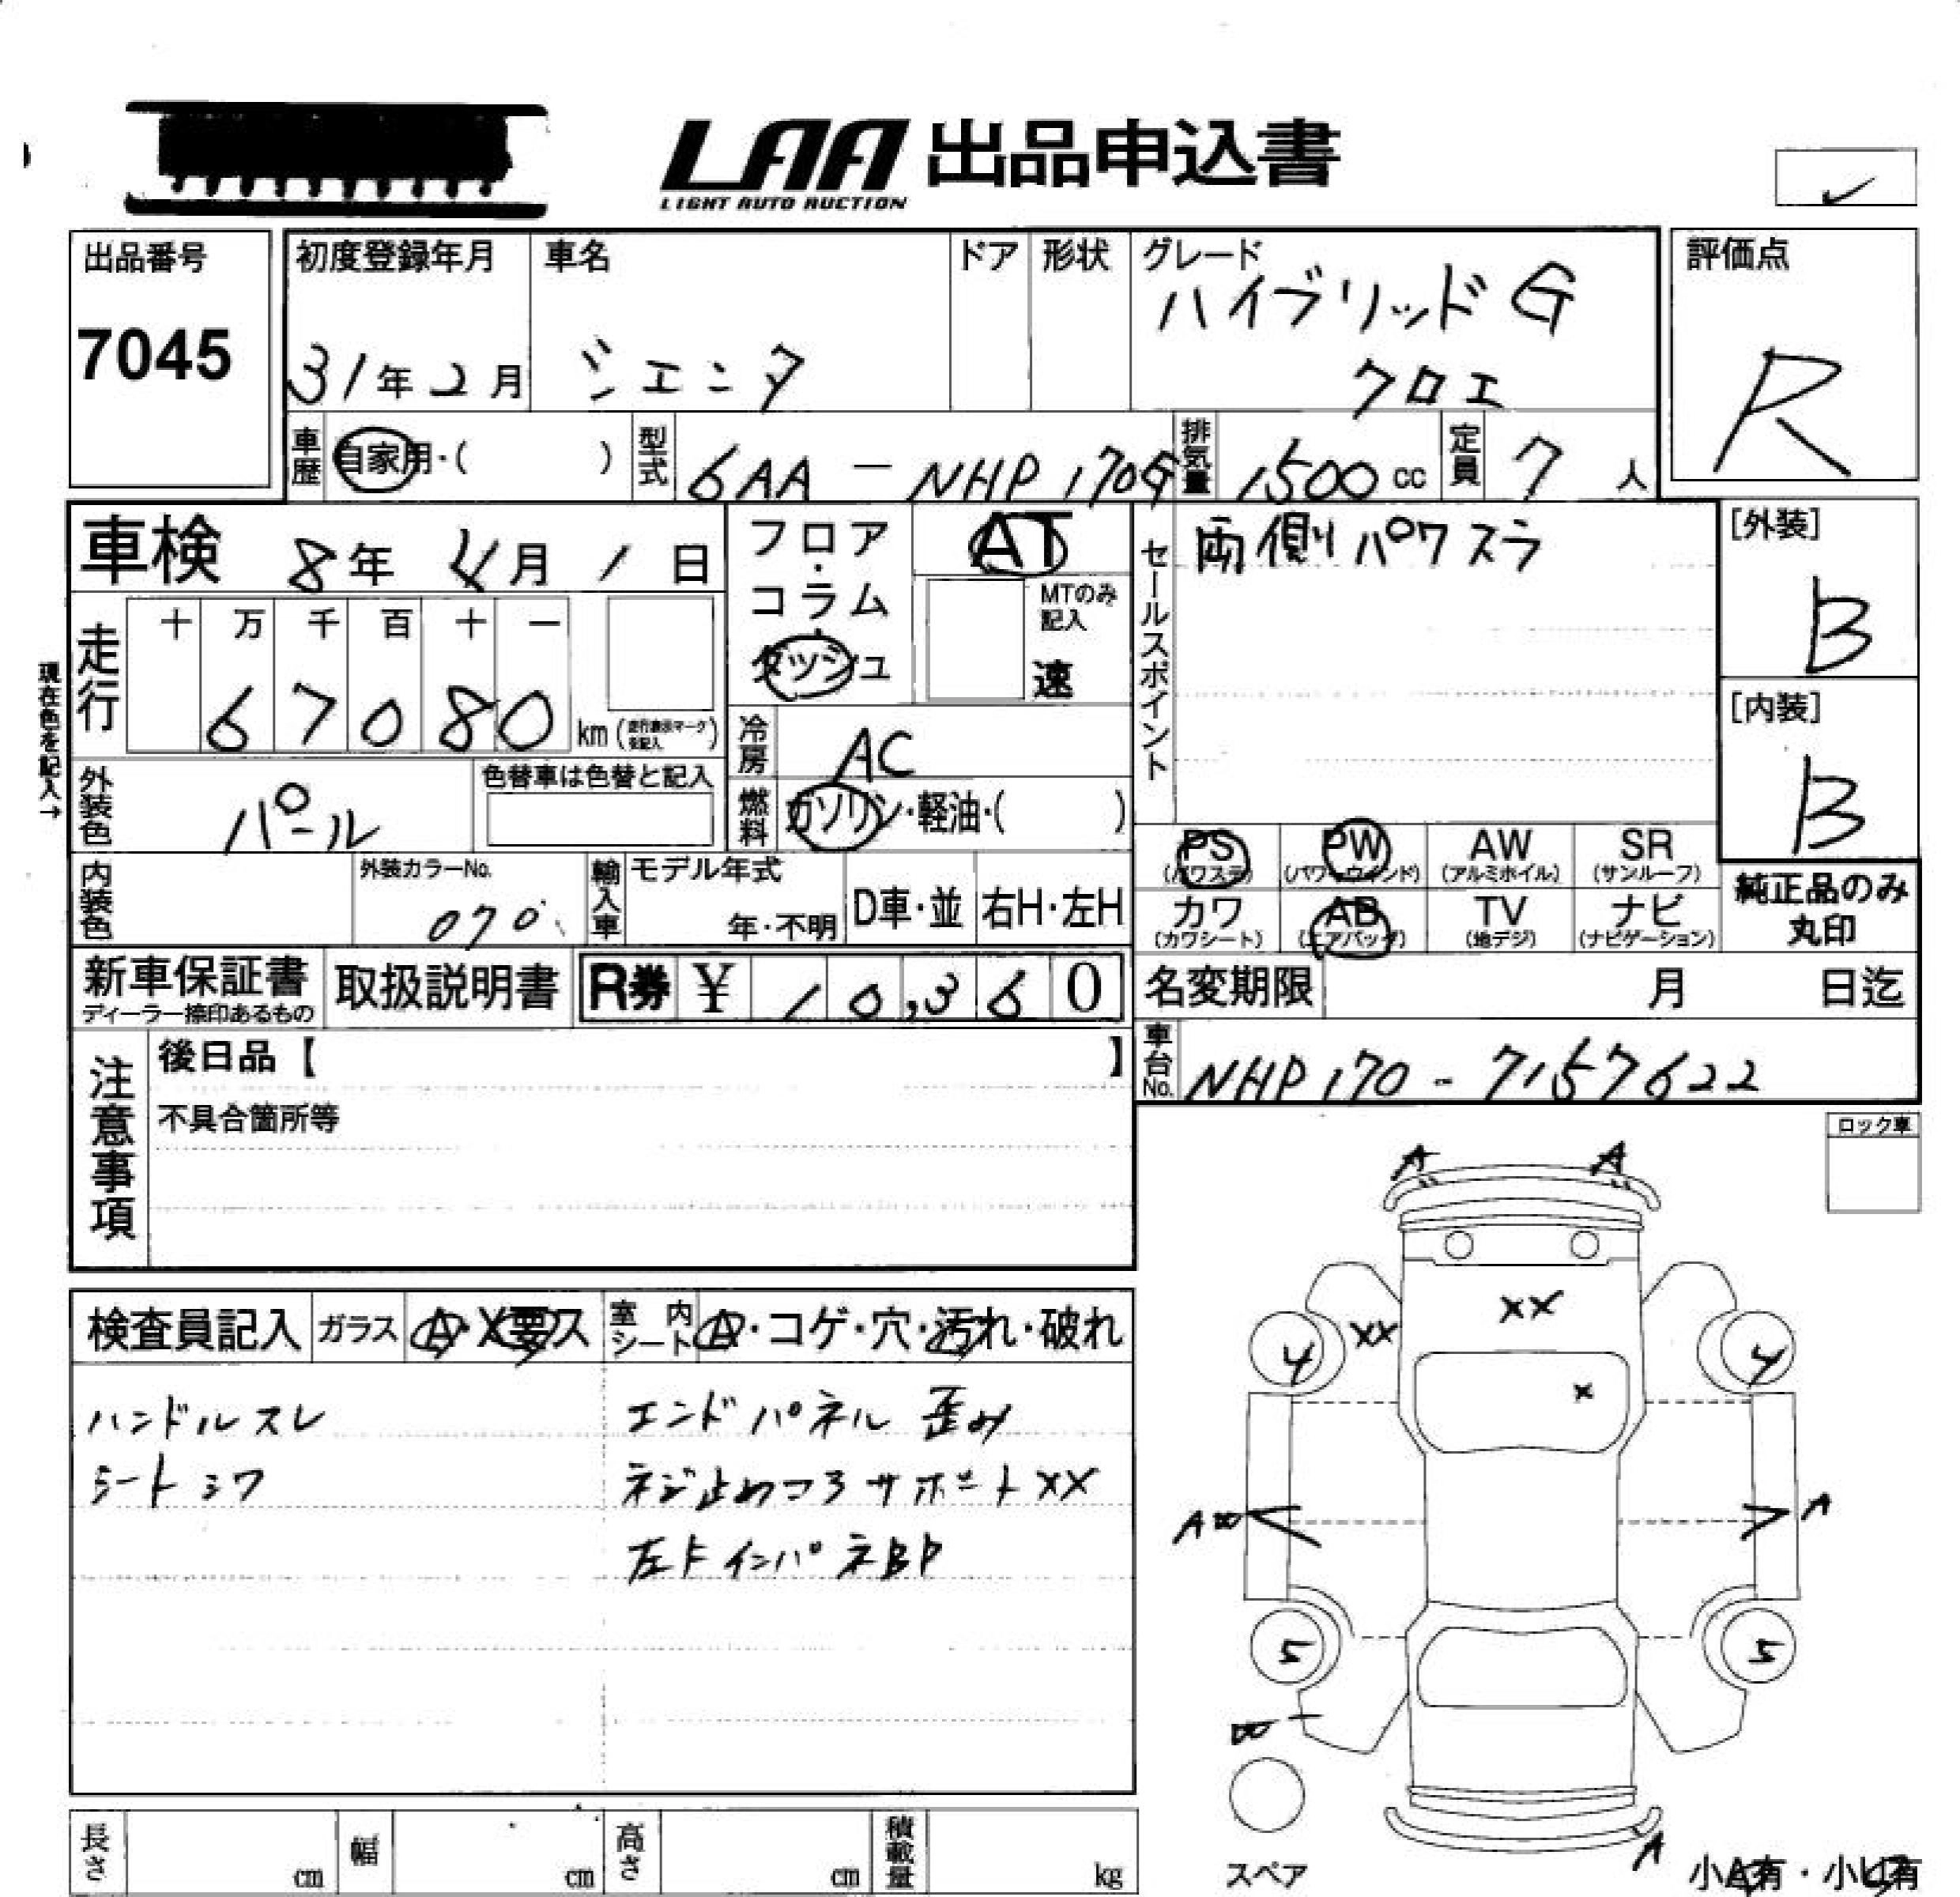 LAA 出品申込書
LIGHT AUTO AUCTION
出品番号
7045
初度登録年月
31年2月
車名
シエンタ
ドア
形状
グレード
ハイブリッドG
クロエ
評価点
R
車歴
自家用・( )
型式
6AA - NHP170G
排気量
1500 cc
定員
7 人
車検 8年 4月 1日
フロア・コラム・ダッシュ
AT
MTのみ記入
速
セールスポイント
両側パワスラ
[外装]
B
[内装]
B
現在色を記入→
走行
十 万 千 百 十 一
6 7 0 8 0 km
冷房
AC
燃料
ガソリン・軽油・( )
外装色
パール
色替車は色替と記入
内装色
外装カラーNo.
070
輸入車
モデル年式
年・不明
D車・並
右H・左H
PS (パワステ)
PW (パワーウィンド)
AW (アルミホイル)
SR (サンルーフ)
カワ (カワシート)
AB (エアバッグ)
TV (地デジ)
ナビ (ナビゲーション)
純正品のみ丸印
新車保証書
ディーラー捺印あるもの
取扱説明書
R券 ¥ 10,360
名変期限 月 日迄
車台No.
NHP170-7157622
注意事項
後日品【 】
不具合箇所等
ロック車
検査員記入
ガラス
A・X要ス
室内シート
A・コゲ・穴・汚れ・破れ
ハンドルスレ
シートシワ
エンドパネル 歪み
ネジ止めコアサポートXX
左Fインパネ BP
A A
XX
XX
4 4
X
A W
A
5 5
W
A
スペア
小A有・小U有
長さ cm
幅 cm
高さ cm
積載量 kg